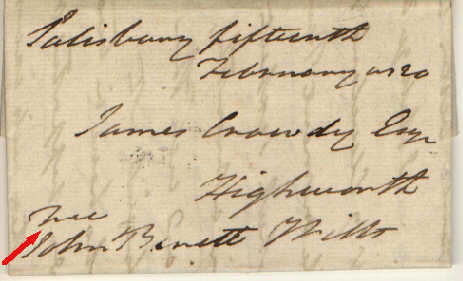 Salisbury fifteenth
February 1820
James Crowdy Esqr
Highworth
Free
John Benett Wilts